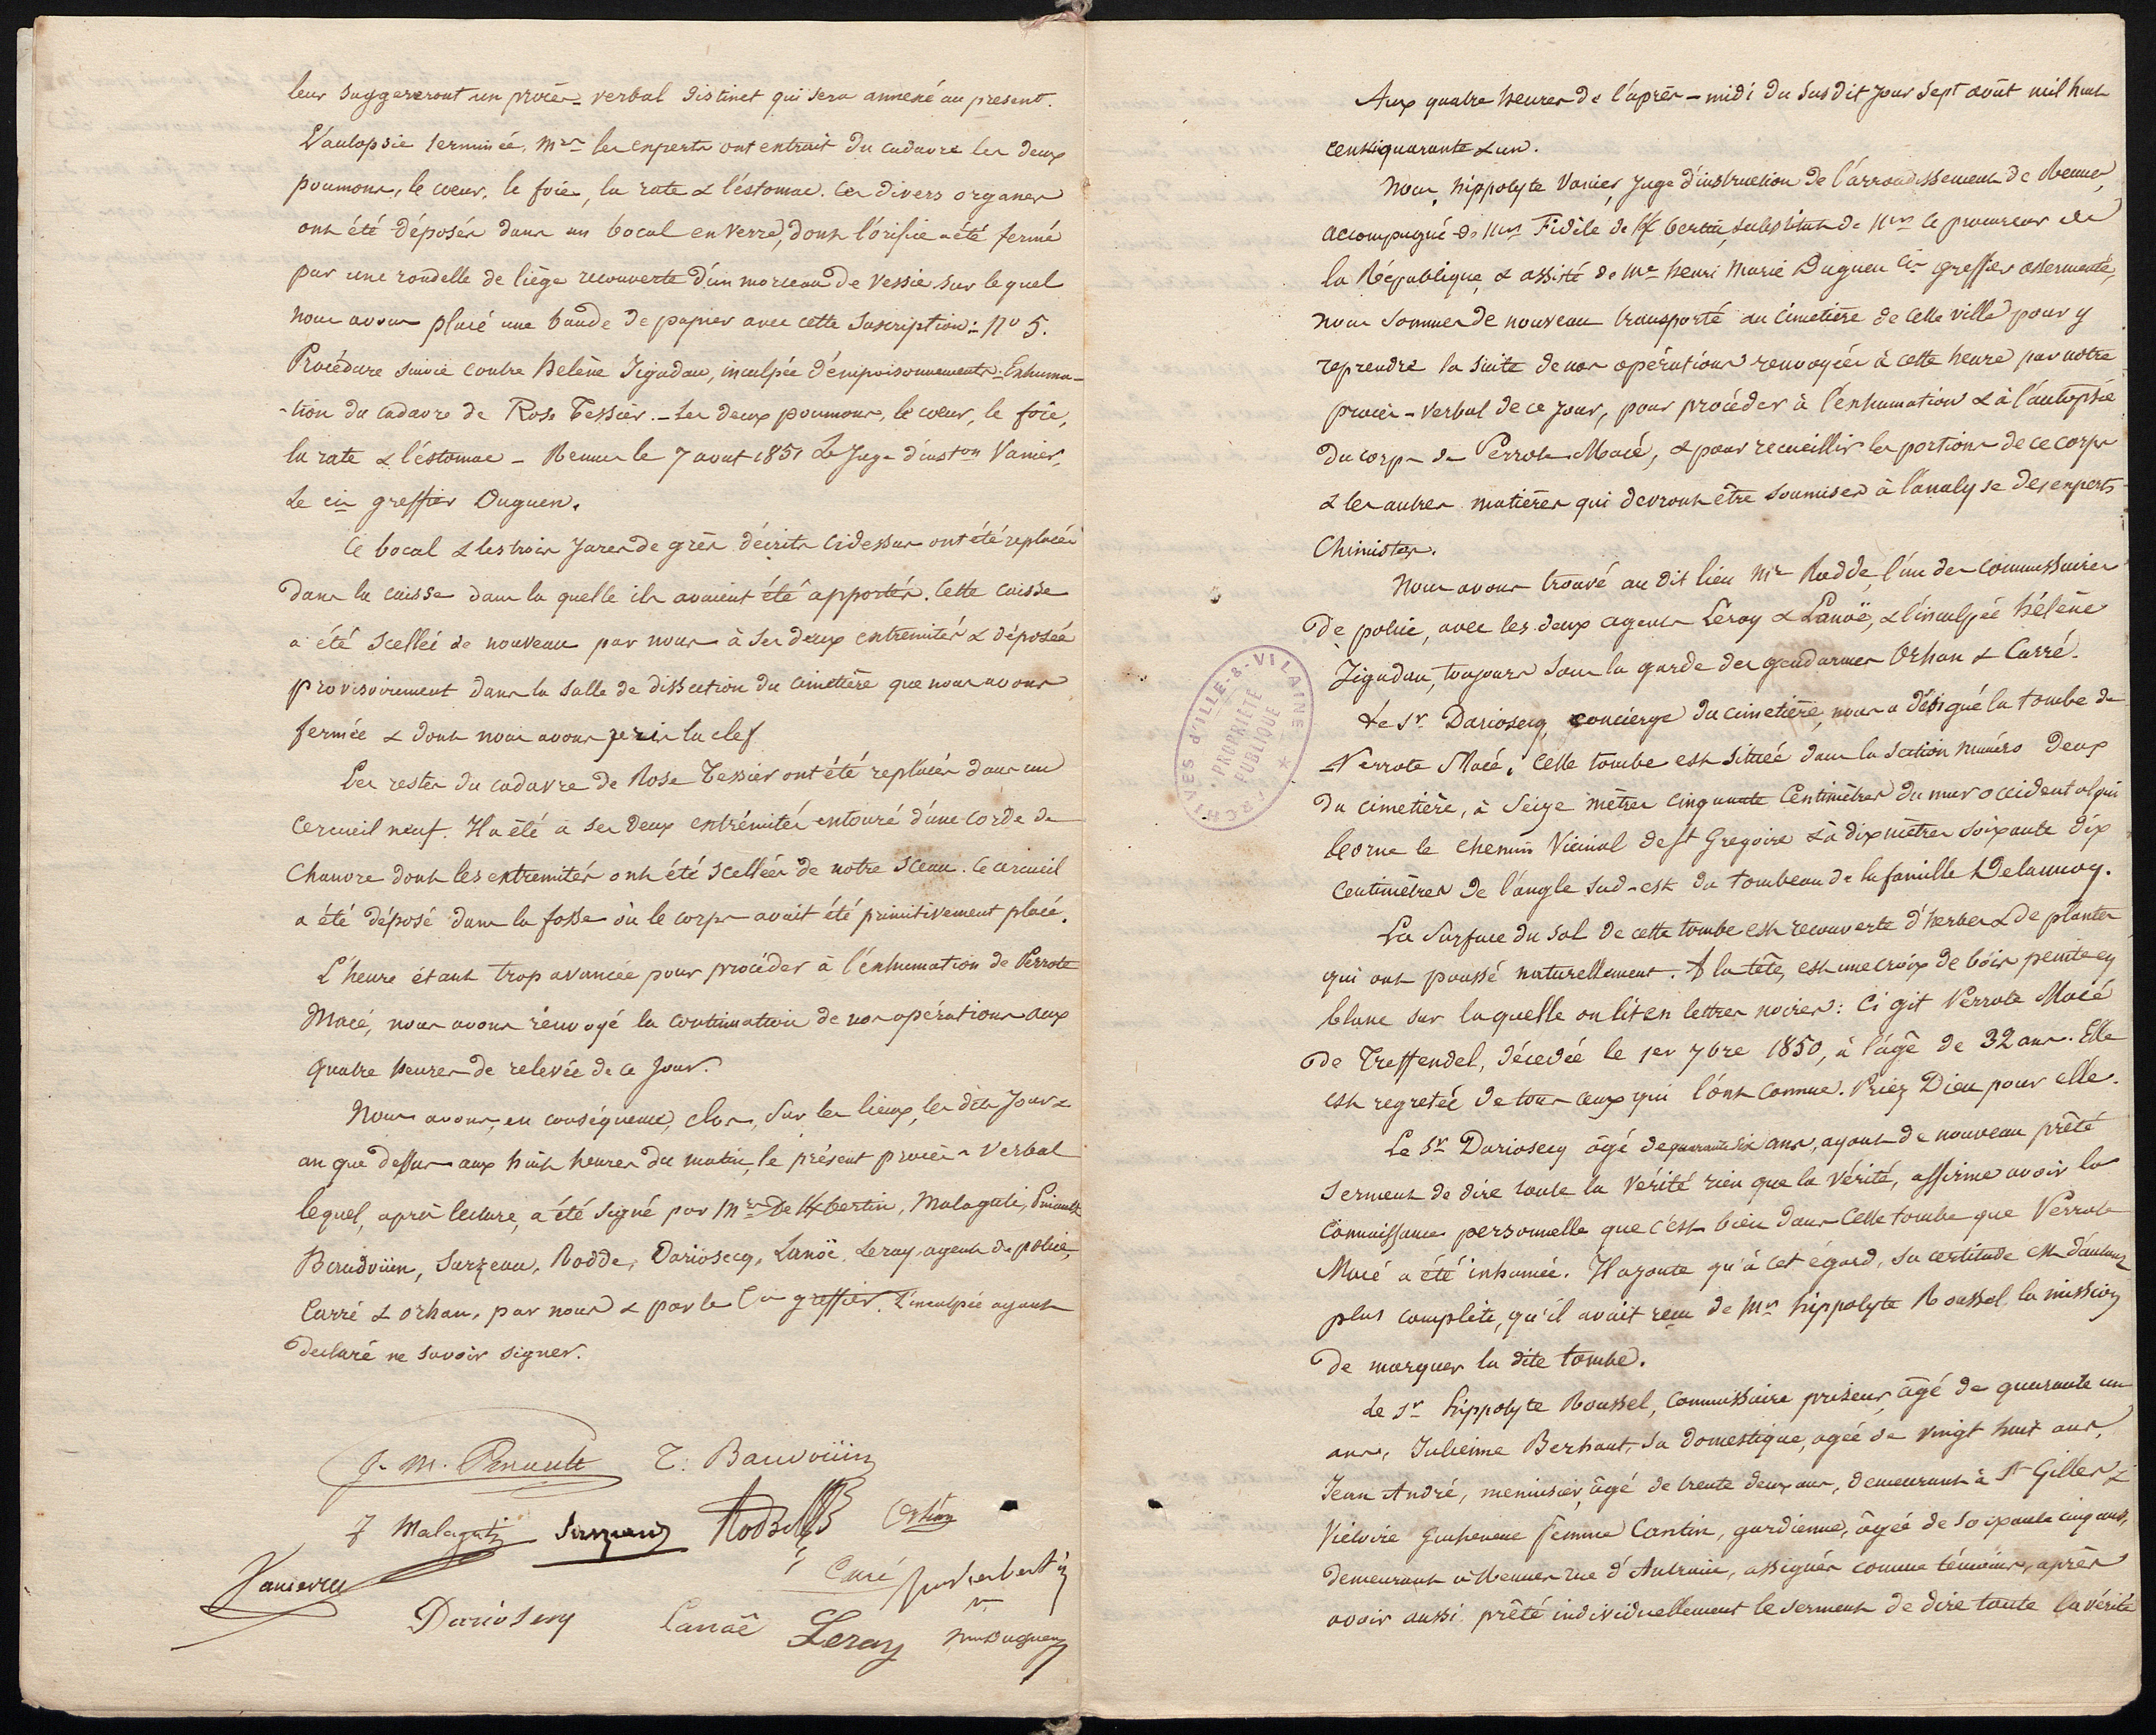 leur suggereront un procès-verbal distinct qui sera annexé au présent.
L'autopsie terminée, Mrs les experts ont extrait du cadavre les deux
poumons, le coeur, le foie, la rate & l'éstomac. Ces divers organes
ont été déposés dans un bocal en verre, dont l'orifice a été fermé
par une rondelle de liège recouverte d'un morceau de vessie sur lequel
nous avons placé une bande de papier avec cette suscription: No 5.
Procédure suivie contre Hélène Jégadau, inculpée d'empoisonnements. Exhuma-
-tion du cadavre de Rose Tessier. - Les deux poumons, le coeur, le foie,
la rate & l'éstomac - Rennes le 7 aout 1851 Le Juge d'inston Vanier,
Le cis greffier Duguen.
Ce bocal & les trois jares de grès décrits cidessus ont été replacés
dans la caisse dans la quelle ils avaient été apportés. Cette caisse
a été scellée de nouveau par nous à ses deux extremités & déposée
provisoirement dans la salle de dissection du cimetière que nous avons
fermée & dont nous avons pris la clef
Les restes du cadavre de Rose Tessier ont été replacés dans un
cercueil neuf. Il a été à ses deux extrémités entouré d'une corde de
chanvre dont les extremités ont été scellées de notre sceau. Ce cercueil
a été déposé dans la fosse où le corps avait été primitivement placé.
L'heure étant trop avancée pour procéder à l'exhumation de Perrote
Macé, nous avons renvoyé la continuation de nos opérations aux
quatre heures de relevée de ce jour.
Nous avons, en conséquence, clos, sur les lieux, les dits jour &
an que dessus aux huit heures du matin, le présent procès-verbal
lequel, après lecture, a été signé par Mrs De Kbertin, Malaguti, Pinault
Baudoüin, Sarzeau, Rodde, Dariosecq, Lanoë, Leray, agents de police,
Carré & Orhan, par nous & par le Cis greffier. L'inculpée ayant
declaré ne savoir signer.
J. M. Pinault T. Baudoüin
F Malaguti Sarzeau Rodde Orhan
Carré
Vanier
Dariosecq Lanoë Leray Duguen
Aux quatre heures de l'après-midi du susdit jour sept août mil huit
cent cinquante & un.
Nous, hippolyte Vanier, Juge d'instruction de l'arrondissement de Rennes,
accompagné de Mr Fidèle de Kbertin, substitut de Mr le procureur de
la République, & assisté de Me henri Marie Duguen Cis greffier assermenté,
nous sommes de nouveau transporté au cimetière de cette ville pour y
reprendre la suite de nos opérations renvoyées à cette heure par notre
procès-verbal de ce jour, pour procéder à l'exhumation & à l'autopsie
du corps de Perrote Macé, & pour recueillir les portions de ce corps
& les autres matières qui devront être soumises à l'analyse des experts
Chimistes.
Nous avons trouvé au dit lieu Mr Rodde, l'un des commissaires
de police, avec les deux agents Léray & Lanoë, & l'inculpée hélène
Jégadau, toujours sous la garde des gendarmes Orhan & Carré.
Le Sr Dariosecq, concierge du cimetière, nous a désigné la tombe de
Perrote Macé. Cette tombe est située dans la section numéro deux
du cimetière, à seize mètres cinquante centimètres du mur occidental qui
borne le chemin vicinal de St Gregoire & à dix mètres soixante dix
centimètres de l'angle sud-est du tombeau de la famille Delaunay.
La surface du sol de cette tombe est recouverte d'herbes & de plantes
qui ont poussé naturellement. A la tête, est une croix de bois peinte en
blanc sur laquelle on lit en lettres noires: Ci git Perrote Macé
de Treffendel, décédée le 1er 7bre 1850, à l'âge de 32 ans. Elle
est regretée de tous ceux qui l'ont connue. Priez Dieu pour elle.
Le Sr Dariosecq âgé de quarante six ans, ayant de nouveau prêté
serment de dire toute la vérité rien que la vérité, affirme avoir la
connaissance personnelle que c'est bien dans cette tombe que Perrote
Macé a été inhumée. Il ajoute qu'à cet égard, sa certitude est d'autant
plus complète, qu'il avait reçu de Mr hippolyte Roussel la mission
de marquer la dite tombe.
Le Sr hippolyte Roussel, commissaire priseur, âgé de quarante un
ans, Julienne Berhaut, sa domestique, agée de vingt huit ans,
Jean André, menuisier, âgé de trente deux ans, demeurant à St Gilles &
Victoire femme Cantin, gardienne, âgée de soixante cinq ans,
demeurant à Rennes rue d'Antrain, assignés comme témoins, après
avoir aussi prêté individuellement le serment de dire toute la vérité
ARCHIVES D'ILLE-&-VILAINE
PROPRIÉTÉ
PUBLIQUE